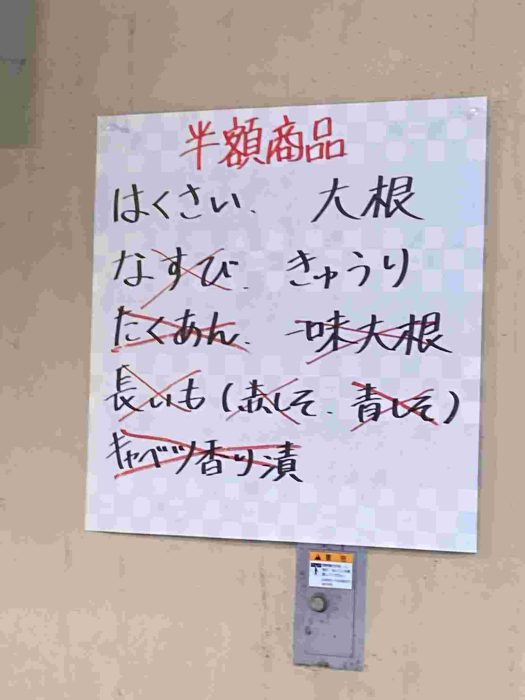 半額商品
はくさい、大根
なすび、きゅうり
たくあん、一味大根
長いも(赤しそ、青しそ)
キャベツ香り漬
注意